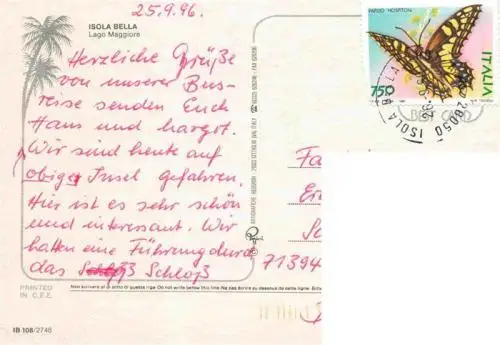 25.9.96.
ISOLA BELLA
Lago Maggiore
Herzliche Grüße
von unserer Bus-
reise senden Euch
Hans und Margot.
Wir sind heute auf
obiger Insel gefahren.
Hier ist es sehr schön
und interessant. Wir
hatten eine Führung durch
das Schloß Schloß
PRINTED
IN C.E.E.
IB 108/2746
Non scrivere al di sotto di questa riga. Do not write below this line. Ne pas écrire au dessous de cette ligne.
PAPILIO HOSPITON
ITALIA
750
28050 ISOLA B
Fa
71394